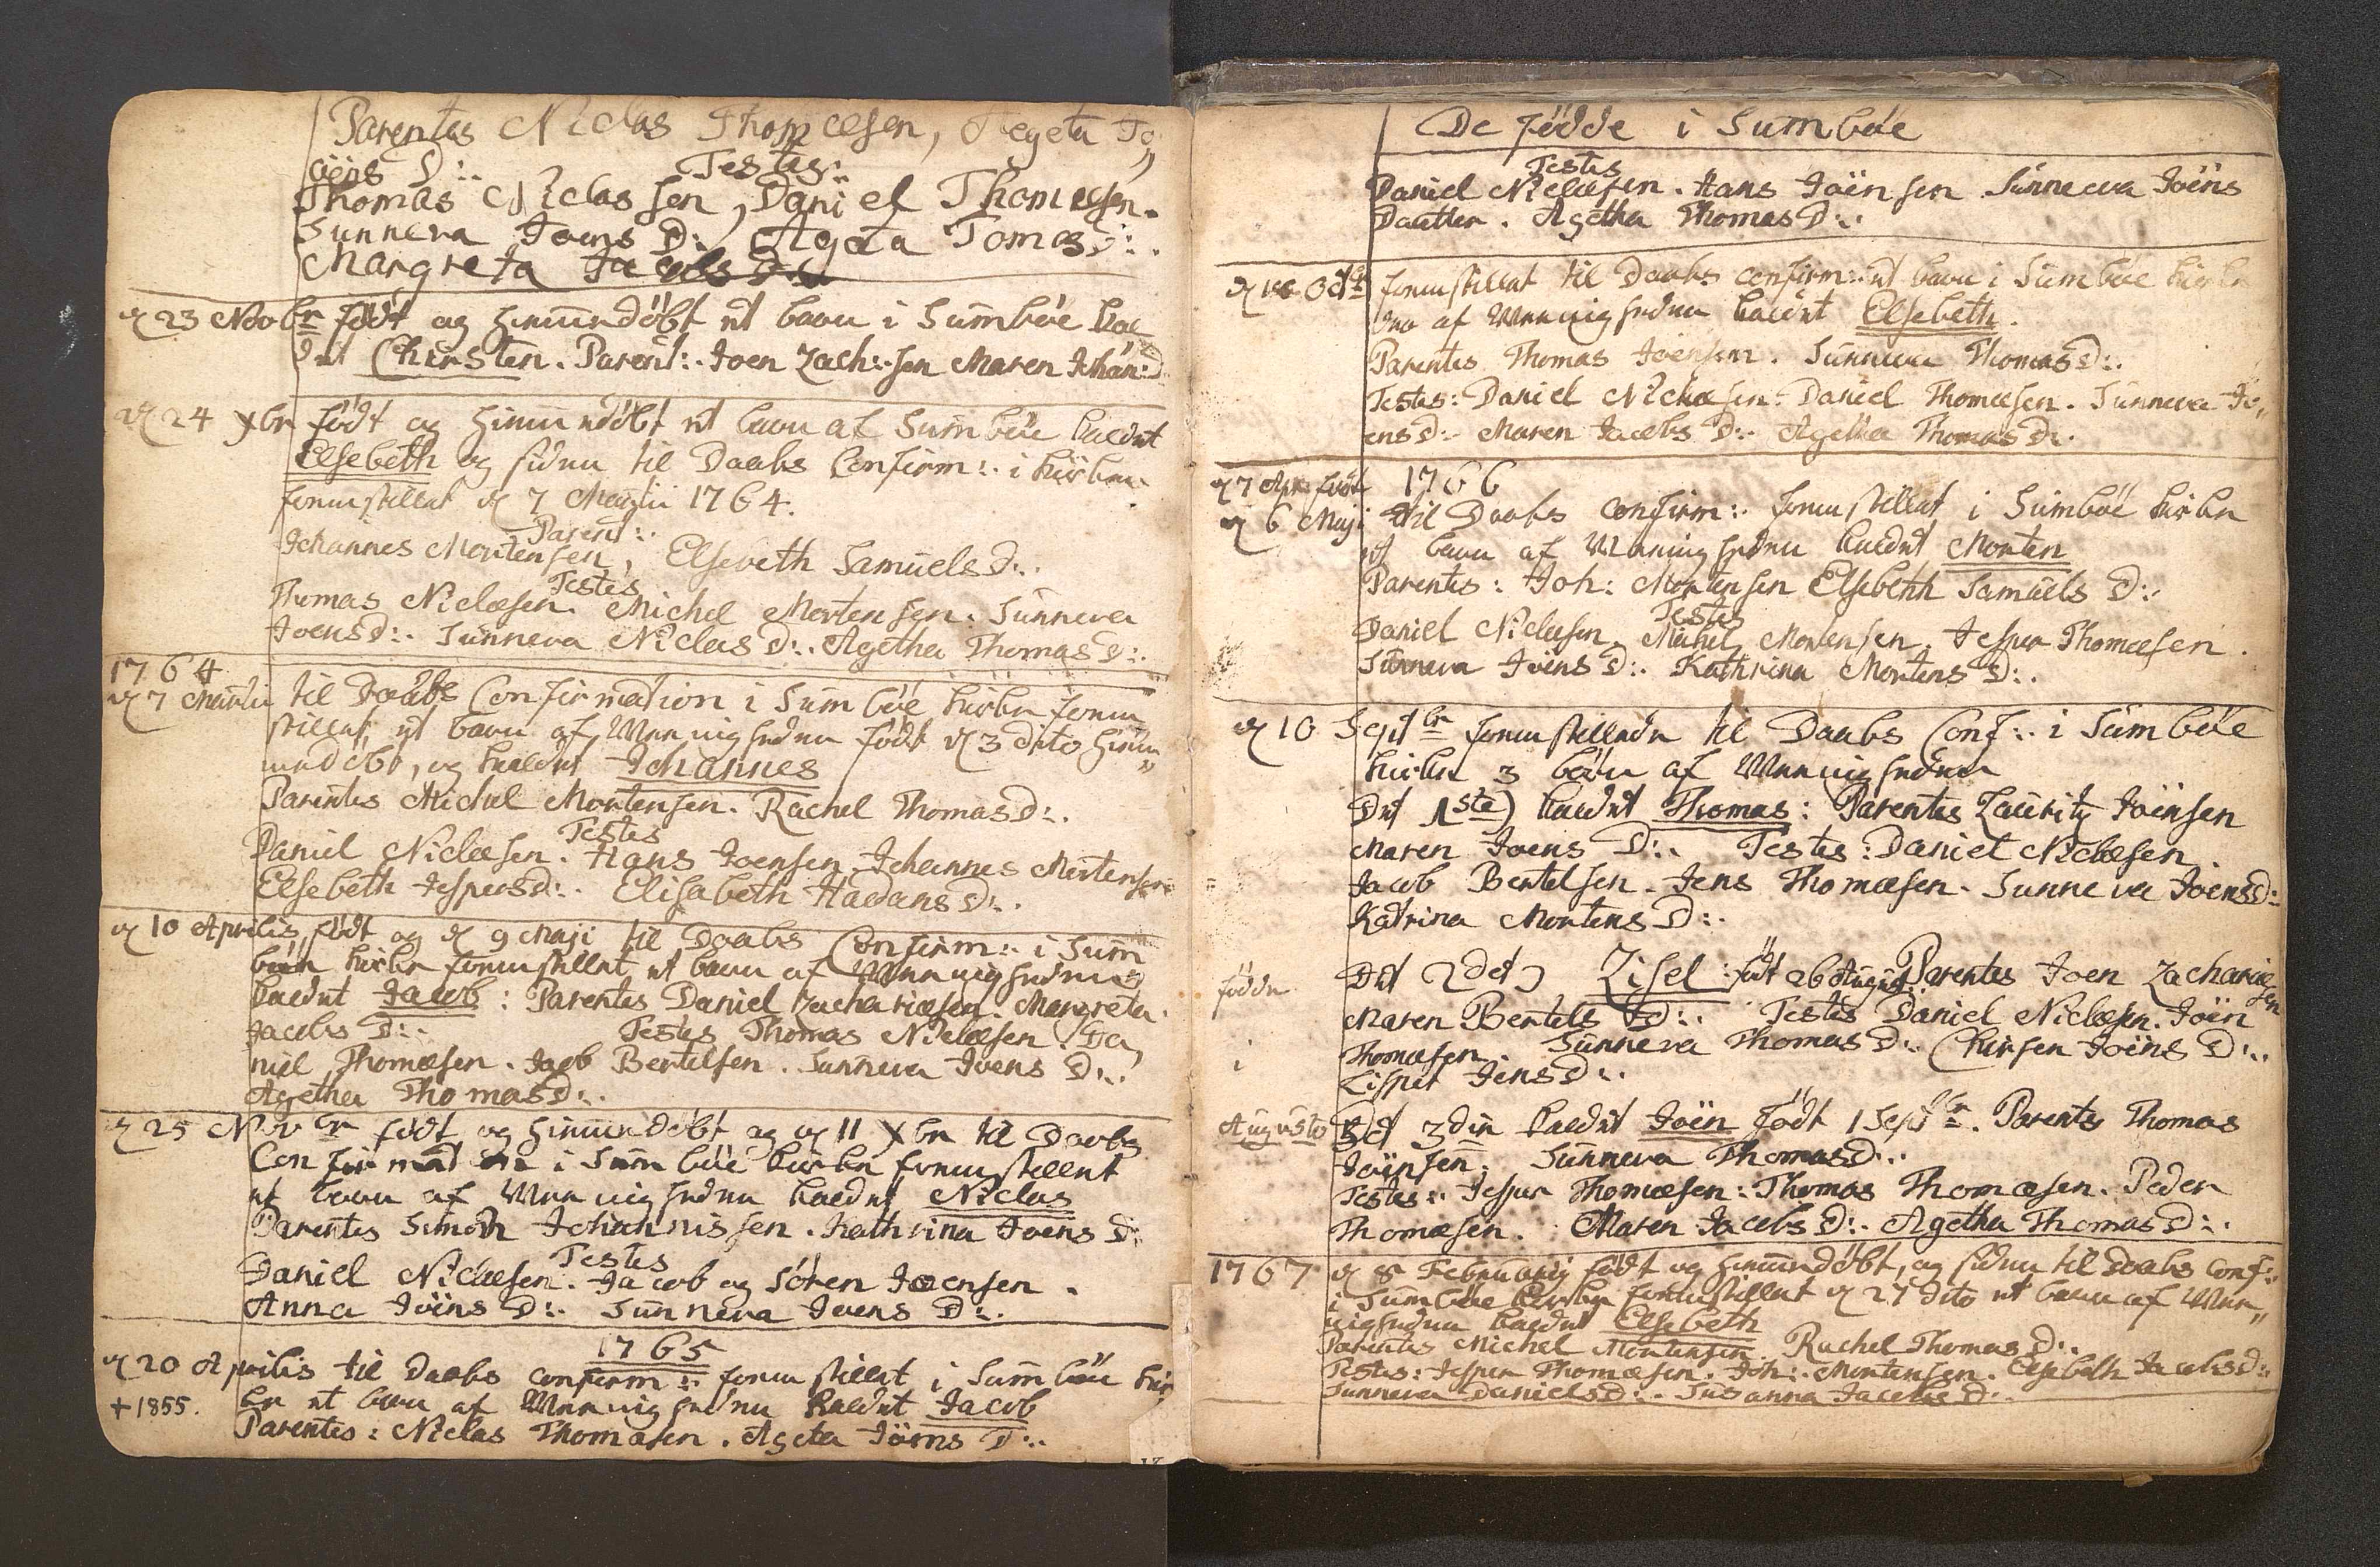 Parentes Niclas Thomæsen, Ageta Jo„
æns D:.
Testes:
Thomas Niclassen, Daniel Thomæsen.
Sunneva Joens D:. Ageta Tomas D:.
Margreta Jacobs D:.
d 23 Novbr født og hiemmedøbt et barn i Sumbøe kal
det Chirsten. Parent:. Joen Zach:sen Maren Johan:D
d 24 Xbr født og hiemmedøbt et barn af Sumbøe kaldet
Elsebeth og siden til Daabs Confirm:. i kirken
fremstillet d 7 Martii 1764.
Parent:.
Johannes Mortensen, Elsebeth Samuels D:.
Testes
Thomas Niclæsen. Michel Mortensen. Sunneva
Joens D:. Sunneva Niclas D:. Agetha Thomas D:.
1764
d 7 Martii til Daabs Confirmation i Sumbøe kirke frem
stillet et barn af Menigheden født d 3 dito hiem„
medøbt, og kaldet Johannes
Parentes Michel Mortensen. Rachel Thomas D:.
Testes
Daniel Niclæsen. Hans Joensen. Johannes Mortensen
Elsebeth Jespers D:. Elisabeth Hadans D:.
d 10 Aprilis født og d 9 Maji til Daabs Confirm:. i Sum
bøe kirke fremstillet et barn af Menigheden
kaldet Jacob: Parentes Daniel Zachariæsen. Margreta
Jacobs D:. Testes Thomas Niclæsen. Da„
niel Thomæsen. Jacob Bertelsen. Sunneva Joens D:.
Agetha Thomas D:.
d 25 Novbr født og hiemmedøbt og d 11 Xbr til Daabs
Confirmation i Sumbøe kirke fremstillet
et barn af Menigheden kaldet Niclas
Parentes Simon Johannissen. Kathrina Joens D:
Testes
Daniel Niclæsen. Jacob og Sören Joensen.
Anna Joens D:. Sunneva Joens D:.
1765
d 20 Aprilis til Daabs confirm:. fremstillet i Sumbøe kir
+1855. ke et barn af Menigheden kaldet Jacob
Parentes: Niclas Thomæsen. Ageta Jöens D:.
De fødde i Sumbøe
Testes
Daniel Niclæsen. Hans Joënsen Sunneva Joëns
Daatter. Agetha Thomas D:.
Octbr fremstillet til Daabs confirm:. et barn i Sumbøe kirke
af Menigheden kaldet Elsebeth.
Parentes Thomas Joensen. Sunneva Thomas D:.
Testes: Daniel Niclæsen. Daniel Thomæsen. Sunneva Jo„
ens D:. Maren Jacobs D:. Agetha Thomas D:.
1766
d 7 Apr født
d 6 Maji til Daabs confirm:. fremstillet i Sumbøe kirke
et barn af Menigheden kaldet Morten
Parentes: Joh: Mortensen Elsebeth Samuels D:.
Testes
Daniel Niclæsen. Michel Mortensen. Jesper Thomæsen.
Sunneva Joens D:. Kathrina Mortens D:.
d 10 Septbr fremstillede til Daabs Conf:. i Sumbøe
kirke 3 børn af Menigheden
Det 1ste) kaldet Thomas: Parentes Lauritz Joensen
Maren Joens D:. Testes: Daniel Niclæsen.
Jacob Bertelsen. Jens Thomæsen. Sunneva Joens D:
Katrina Mortens D:.
fødde Det 2det) Zisel: født 26 August: Parentes Joen Zachariæsen
Maren Bertels D:. Testes Daniel Niclæsen. Joën
i Thomæsen. Sunneva Thomas D:. Chirsen Joëns D:.
Lispet Jens D:.
Augusto Det 3die kaldet Joën født 1 Septbr. Parentes Thomas
Joënsen. Sunneva Thomas D:.
Testes: Jesper Thomæsen: Thomas Thomæsen. Peder
Thomæsen. Maren Jacobs D:. Agetha Thomas D:.
1767 d 8 Februarij født og hiemmedøbt, og siden til Daabs Conf:
i Sumbøe kirke fremstillet d 27 dito et barn af Men„
igheden kaldet Elsebeth
Parentes Michel Mortensen. Rachel Thomas D:.
Testes: Jesper Thomæsen. Joh:. Mortensen. Elsebeth Jacobs D:
Sunneva Daniels D:. Susanna Jacobs D:.